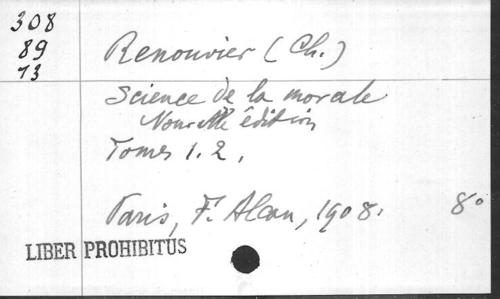 308
89
13
Renouvier (Ch.)
Science de la morale
Nouvelle édition
Tomes 1. 2.
Paris, F. Alcan, 1908.
8º
LIBER PROHIBITUS